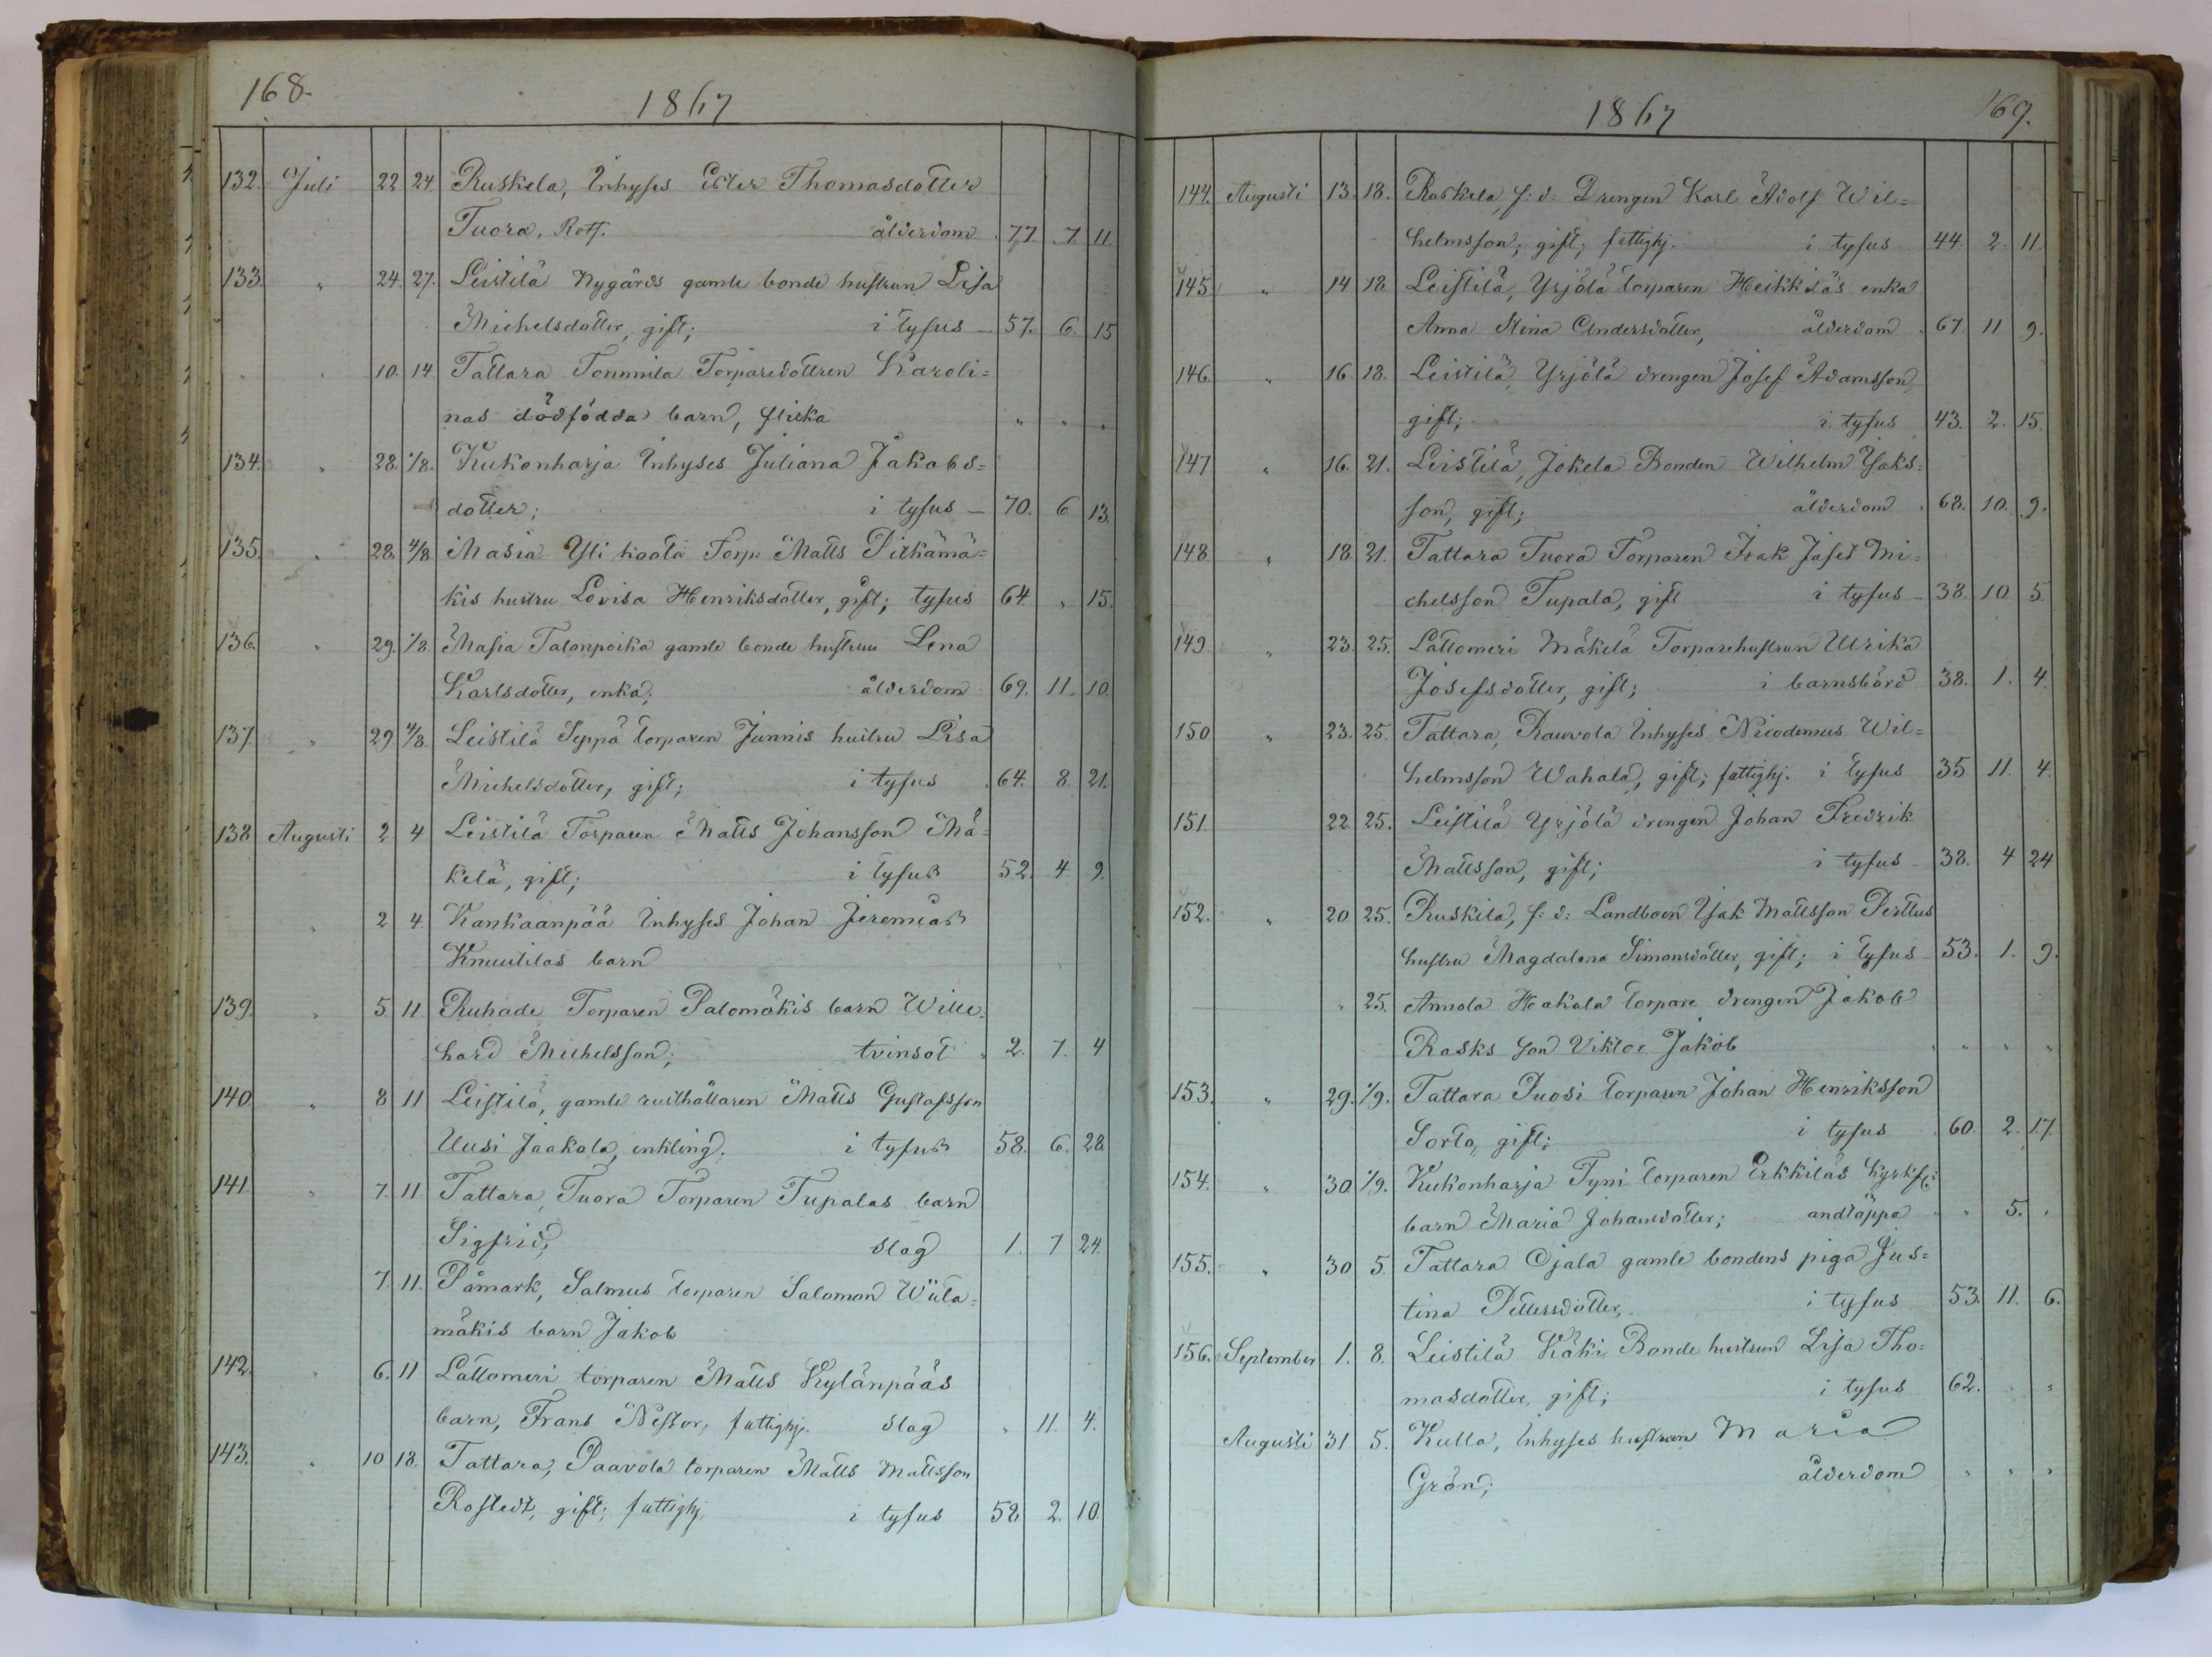 168.
1867
132. Juli 22 24. Ruskela, Inhyses Ester Thomasdotter
Tuora, Rotf. ålderdom 77. 7 11.
133. " 24. 27. Leistilä Nygårds gamle bonde hustrun Lisa
Michelsdotter, gift; i tyfus – 57. 6. 15
" " 10. 14 Tattara Tommila Torparedottren Karoli=
nas dödfödda barn, flicka " " "
134. " 28. 1/8. Kukonharja Inhyses Juliana Jakobs=
dotter; i tyfus – 70. 6 13.
135. " 28. 4/8. Masia Yli koota Torp: Matts Pitkämä=
kis hustru Lovisa Henriksdotter, gift; tyfus 64. " 15.
136. " 29. 1/8. Masia Talonpoika gamle bonde hustrun Lena
Karlsdotter, enka; ålderdom 69. 11. 10.
137. " 29. 4/8. Leistilä Seppä torparen Junnis hustru Lisa
Michelsdotter, gift; i tyfus 64. 8. 21.
138 Augusti 2 4 Leistilä Torparen Matts Johansson Mä=
kelä, gift; i tyfus 52. 4 9.
" 2 4. Kankaanpää Inhyses Johan Jeremias
Knuutilas barn
139. " 5. 11. Ruhade Torparen Palomäkis barn Wille=
hard Michelsson; tvinsot " 2. 7. 4
140 " 8 11 Leistilä, gamle rusthållaren Matts Gustafsson
Uusi Jaakola, enkling; i tyfus 58. 6. 28.
141. " 7. 11. Tattara, Tuora Torparen Tupalas barn
Sigfrid, slag 1. 7 24.
7. 11. Påmark, Salmus torparen Salomon Wiila=
mäkis barn Jakob
142. " 6. 11 Lattomeri torparen Matts Kylänpääs
barn, Frans Nestor, fattighj. slag " 11. 4.
143. " 10 18. Tattara, Paavola torparen Matts Mattsson
Rostedt, gift; fattighj. i tyfus 52 2. 10.
1867
169.
144. Augusti 13. 18. Ruskela, f: d: Drengen Karl Adolf Wil=
helmsson; gift; fattighj. i tyfus 44. 2. 11.
145. " 14 18. Leistilä, Yrjölä torparen Heikkiläs enka
Anna Stina Andersdotter, ålderdom 67. 11 9.
146. " 16 18. Leistilä, Yrjölä drengen Josef Adamsson
gift; i tyfus 43. 2. 15.
147 " 16. 21. Leistilä, Jokela Bonden Wilhelm Isaks=
son, gift; ålderdom 68. 10. 9.
148. " 18. 21. Tattara Tuora Torparen Isak Josef Mi=
chelsson Tupala, gift i tyfus – 38. 10 5.
149. " 23. 25. Lattomeri Mäkelä Torparehustrun Ulrika
Josefsdotter, gift; i barnsbörd 38. 1. 4.
150 " 23. 25. Tattara, Rauvola Inhyses Nicodemus Wil=
helmsson Wahala, gift; fattighj. i tyfus 35 11. 4.
151. 22 25. Leistilä Yrjölä drengen Johan Fredrik
Mattsson, gift; i tyfus 38. 4 24
152. " 20 25. Ruskila, f: d: Landboen Isak Mattsson Perttus
hustru Magdalena Simonsdotter, gift; i tyfus 53. 1. 9.
" 25. Annola Haakala torpare drengen Jakob
Rasks son Viktor Jakob " " " "
153. " 29. 1/9. Tattara Puosi torparen Johan Henriksson
Sorto, gift; i tyfus 60. 2. 17.
154. " 30 1/9. Kukonharja Tyni torparen Erkkiläs
barn Maria Johansdotter; andtäppa " 5. "
155. " 30 5. Tattara Ojala gamle bondens piga Jus=
tina Pettersdotter, i tyfus 53. 11. 6.
156. September 1. 8. Leistilä Käki Bonde hustrun Lisa Tho=
masdotter, gift; i tyfus 62. "
Augusti 31 5. Kulla, Inhyses hustrun Maria
Grön; ålderdom " " "